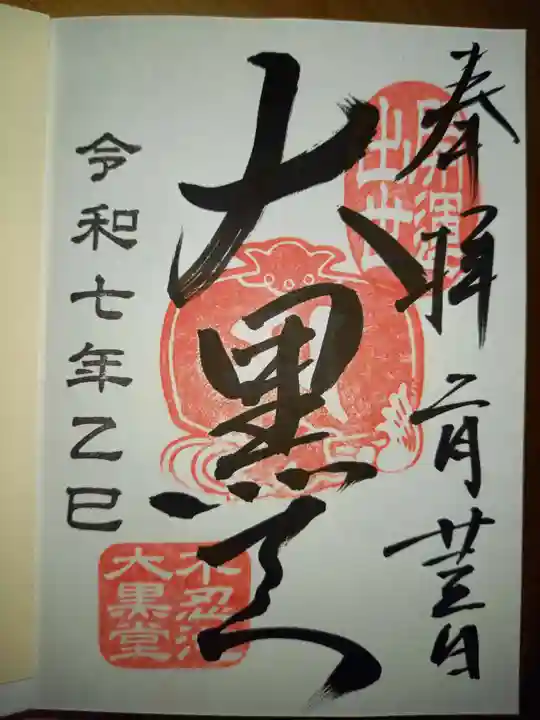 奉拝 二月廿三日
開運
出世
大黒天
令和七年乙巳
不忍池
大黒堂